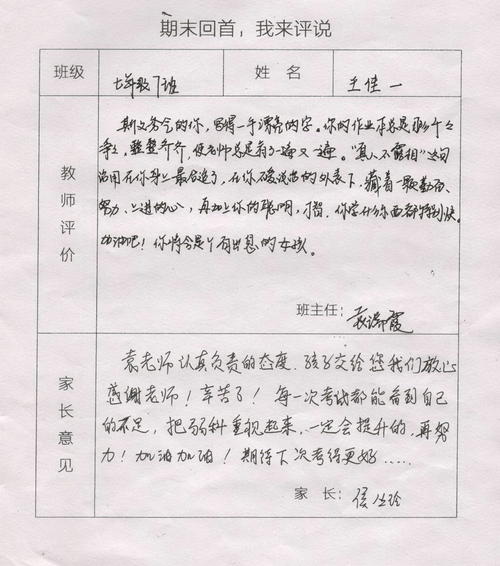 期末回首，我来评说
班级 七年级7班 姓名 王佳一
教师评价
斯文秀气的你，写得一手漂亮的字。你的作业本总是那么干干
净净，整整齐齐，使老师总是看了一遍又一遍。“真人不露相”这句
话用在你身上最合适了，在你不爱说话的外表下，藏着一颗勤奋、
努力、上进的心，再加上你的聪明，才智，你学什么东西都特别快。
加油吧！你将会是个有出息的女孩。
班主任：袁瑞霞
家长意见
袁老师认真负责的态度，孩子交给您我们放心
感谢老师！辛苦了！每一次考试都能看到自己
的不足，把弱科重视起来，一定会提升的，再努
力！加油加油！期待下次考得更好……
家长：侯丛玲